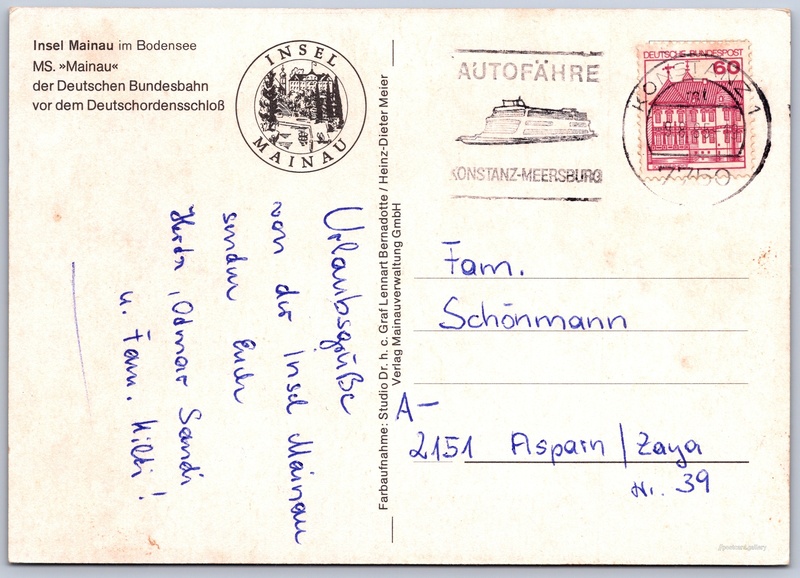 Insel Mainau im Bodensee
MS. »Mainau«
der Deutschen Bundesbahn
vor dem Deutschordensschloß
INSEL
MAINAU
Farbaufnahme: Studio Dr. h. c. Graf Lennart Bernadotte / Heinz-Dieter Meier
Verlag Mainauverwaltung GmbH
AUTOFÄHRE
KONSTANZ-MEERSBURG
DEUTSCHE BUNDESPOST
60
KONSTANZ 1
7750
Urlaubsgrüße
von der Insel Mainau
senden Euch
Herta, Odmar Sandi
u. Fam. Hilti!
Fam.
Schönmann
A-
2151 Asparn/Zaya
Nr. 39